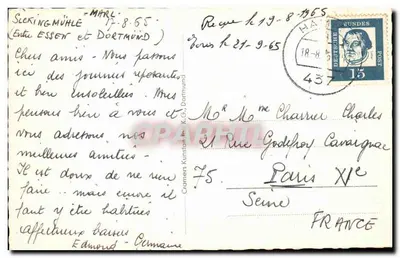 - MARL -
SICKINGMÜHLE 7-8-65
(Entre ESSEN et DORTMUND)
Chers amis - Nous passons
ici des journées reposantes
et bien ensoleillées. Nous
pensons bien à vous et
vous adressons nos
meilleures amitiés -
Il est doux de ne rien
faire .. mais encore il
faut y être habitués
affectueux baisers
Edmond - Germaine
Reçue le 13-8-1965
Ecrit le 21-9-65
437
DEUTSCHE BUNDESPOST
15
Cramers Kunstanstalt K.G., Dortmund
Mr Mme Charrier Charles
21 Rue Godefroy Cavaignac
75 Paris XIe
Seine
FRANCE